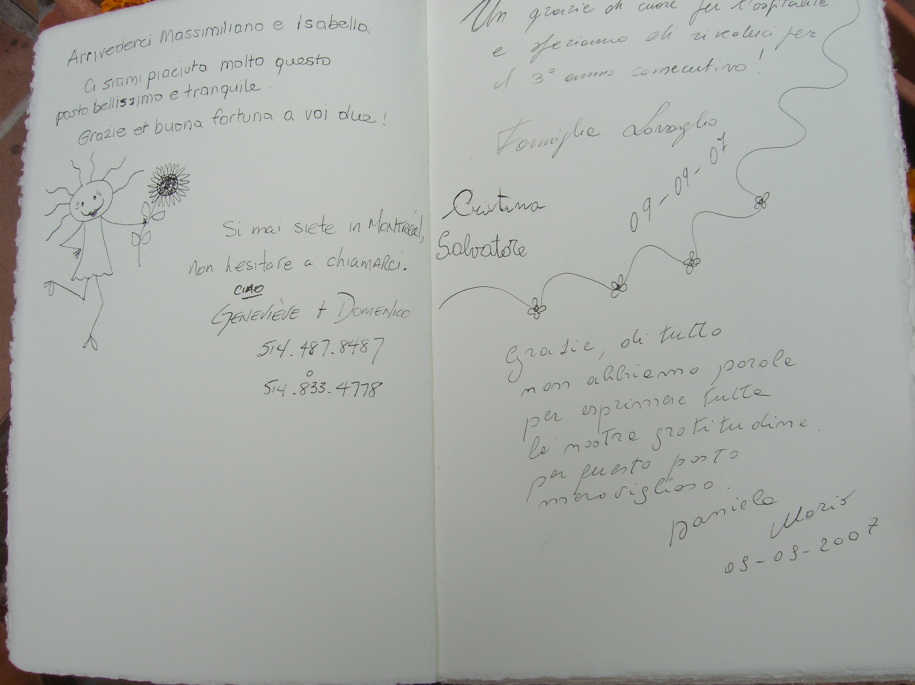 Arrivederci Massimiliano e isabella
Ci siami piaciuto molto questo
posto bellissimo e tranquile.
Grazie et buona fortuna a voi due!
Si mai siete in Montréal,
non hesitare a chiamarci.
ciao
Geneviève + Domenico
514.487.8487
o
514.833.4778
Un grazie di cuore per l'ospitalità
e speriamo di rivederci per
il 3° anno consecutivo!
Famiglia
09-09-07
Cristina
Salvatore
Grazie, di tutto
non abbiamo parole
per esprimere tutta
la nostra gratitudine
per questo posto
meraviglioso.
Daniela
Mario
09-09-2007